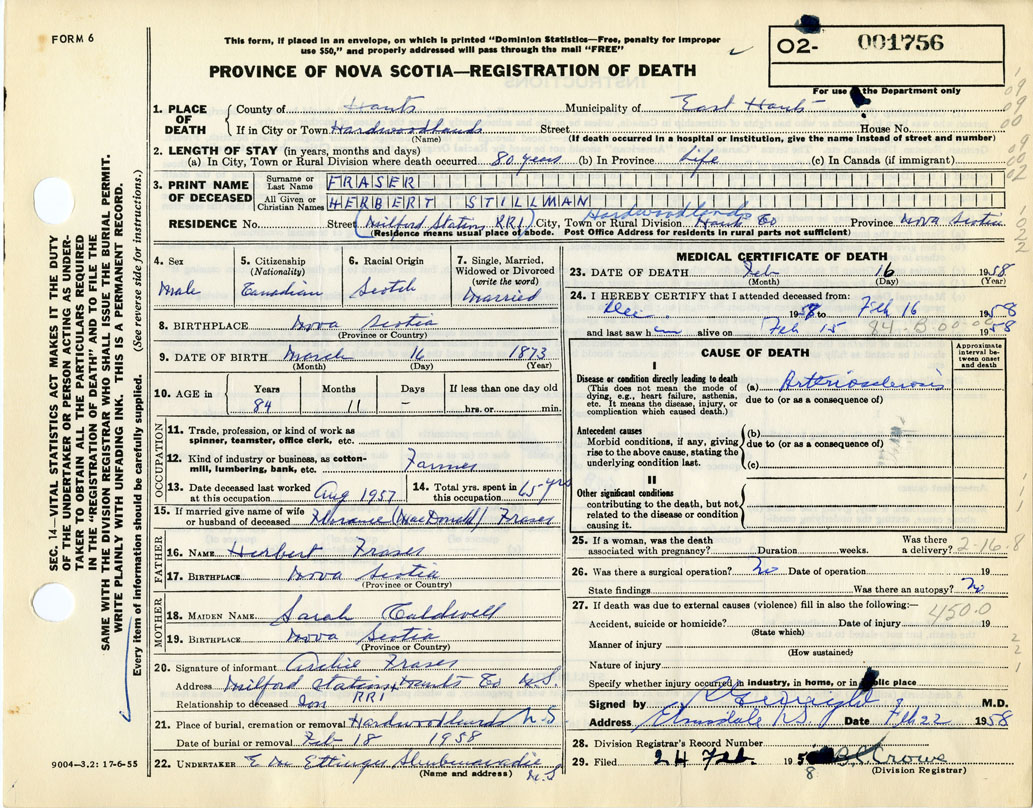 FORM 6
This form, if placed in an envelope, on which is printed "Dominion Statistics—Free, penalty for improper
use $50," and properly addressed will pass through the mail "FREE"
PROVINCE OF NOVA SCOTIA—REGISTRATION OF DEATH
02- 001756
For use of the Department only
SEC. 14—VITAL STATISTICS ACT MAKES IT THE DUTY
OF THE UNDERTAKER OR PERSON ACTING AS UNDER-
TAKER TO OBTAIN ALL THE PARTICULARS REQUIRED
IN THE "REGISTRATION OF DEATH" AND TO FILE THE
SAME WITH THE DIVISION REGISTRAR WHO SHALL ISSUE THE BURIAL PERMIT.
WRITE PLAINLY WITH UNFADING INK. THIS IS A PERMANENT RECORD.
Every item of information should be carefully supplied. (See reverse side for instructions.)
1. PLACE OF DEATH County of Hants Municipality of East Hants
If in City or Town Hardwoodlands Street House No.
(Name) (If death occurred in a hospital or institution, give the name instead of street and number)
2. LENGTH OF STAY (in years, months and days)
(a) In City, Town or Rural Division where death occurred 80 years (b) In Province Life (c) In Canada (if immigrant)
3. PRINT NAME OF DECEASED Surname or Last Name FRASER
All Given or Christian Names HERBERT STILLMAN
Hardwoodlands
RESIDENCE No. Street (Milford Station RR1) City, Town or Rural Division Hants Co Province Nova Scotia
(Residence means usual place of abode. Post Office Address for residents in rural parts not sufficient)
4. Sex 5. Citizenship (Nationality) 6. Racial Origin 7. Single, Married, Widowed or Divorced (write the word)
Male Canadian Scotch Married
8. BIRTHPLACE Nova Scotia
(Province or Country)
9. DATE OF BIRTH March 16 1873
(Month) (Day) (Year)
10. AGE in Years Months Days If less than one day old
84 11 - hrs. or min.
OCCUPATION
11. Trade, profession, or kind of work as spinner, teamster, office clerk, etc.
12. Kind of industry or business, as cotton-mill, lumbering, bank, etc. Farmer
13. Date deceased last worked at this occupation Aug 1957 14. Total yrs. spent in this occupation 65 yrs
15. If married give name of wife or husband of deceased (MacDonell) Fraser
FATHER
16. NAME Herbert Fraser
17. BIRTHPLACE Nova Scotia
(Province or Country)
MOTHER
18. MAIDEN NAME Sarah Caldwell
19. BIRTHPLACE Nova Scotia
(Province or Country)
20. Signature of informant Archie Fraser
Address Milford Station Hants Co N.S.
RR1
Relationship to deceased Son
21. Place of burial, cremation or removal Hardwoodlands N S
Date of burial or removal Feb 18 1958
22. UNDERTAKER E. M. Ettinger Shubenacadie N.S
(Name and address)
9004—3.2: 17-6-55
MEDICAL CERTIFICATE OF DEATH
23. DATE OF DEATH Feb 16 1958
(Month) (Day) (Year)
24. I HEREBY CERTIFY that I attended deceased from:
Dec. 195 to Feb 16 1958
and last saw him alive on Feb 15 1958
CAUSE OF DEATH
Approximate interval between onset and death
I
Disease or condition directly leading to death
(This does not mean the mode of dying, e.g., heart failure, asthenia, etc. It means the disease, injury, or complication which caused death.)
(a) Arteriosclerosis
due to (or as a consequence of)
Antecedent causes
Morbid conditions, if any, giving rise to the above cause, stating the underlying condition last.
(b)
due to (or as a consequence of)
(c)
II
Other significant conditions
contributing to the death, but not related to the disease or condition causing it.
25. If a woman, was the death associated with pregnancy? Duration weeks. Was there a delivery? 2-16-8
26. Was there a surgical operation? No Date of operation 19
State findings Was there an autopsy? No
27. If death was due to external causes (violence) fill in also the following:—
450.0
Accident, suicide or homicide? Date of injury 19
(State which)
Manner of injury
(How sustained)
Nature of injury
Specify whether injury occurred in industry, in home, or in public place
Signed by M.D.
Address Elmsdale N.S. Date Feb 22 1958
28. Division Registrar's Record Number
29. Filed 24 Feb. 195 8 Crowe
(Division Registrar)